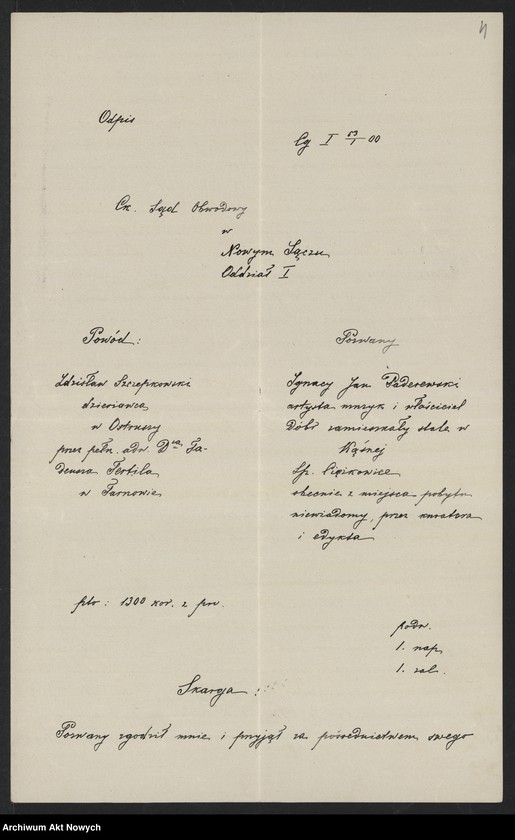 4
Odpis
Cg I 53/1 00
Ck. Sąd Obwodowy
w
Nowym Sączu
Oddział I
Powód:
Zdzisław Szczepkowski
dzierżawca
w Ostruszy
przez pełn. adw. Dra Ta-
deusza Tertila
w Tarnowie
Pozwany
Ignacy Jan Paderewski
artysta muzyk i właściciel
dóbr zamieszkały stale w
Kąśnej
Sp. Ciężkowice
obecnie z miejsca pobytu
niewiadomy, przez kuratora
i edykta
pto: 1300 kor. z pn.
podw.
1. nap.
1. zał.
Skarga:
Pozwany zgodził mnie i przyjął za pośrednictwem swego
Archiwum Akt Nowych